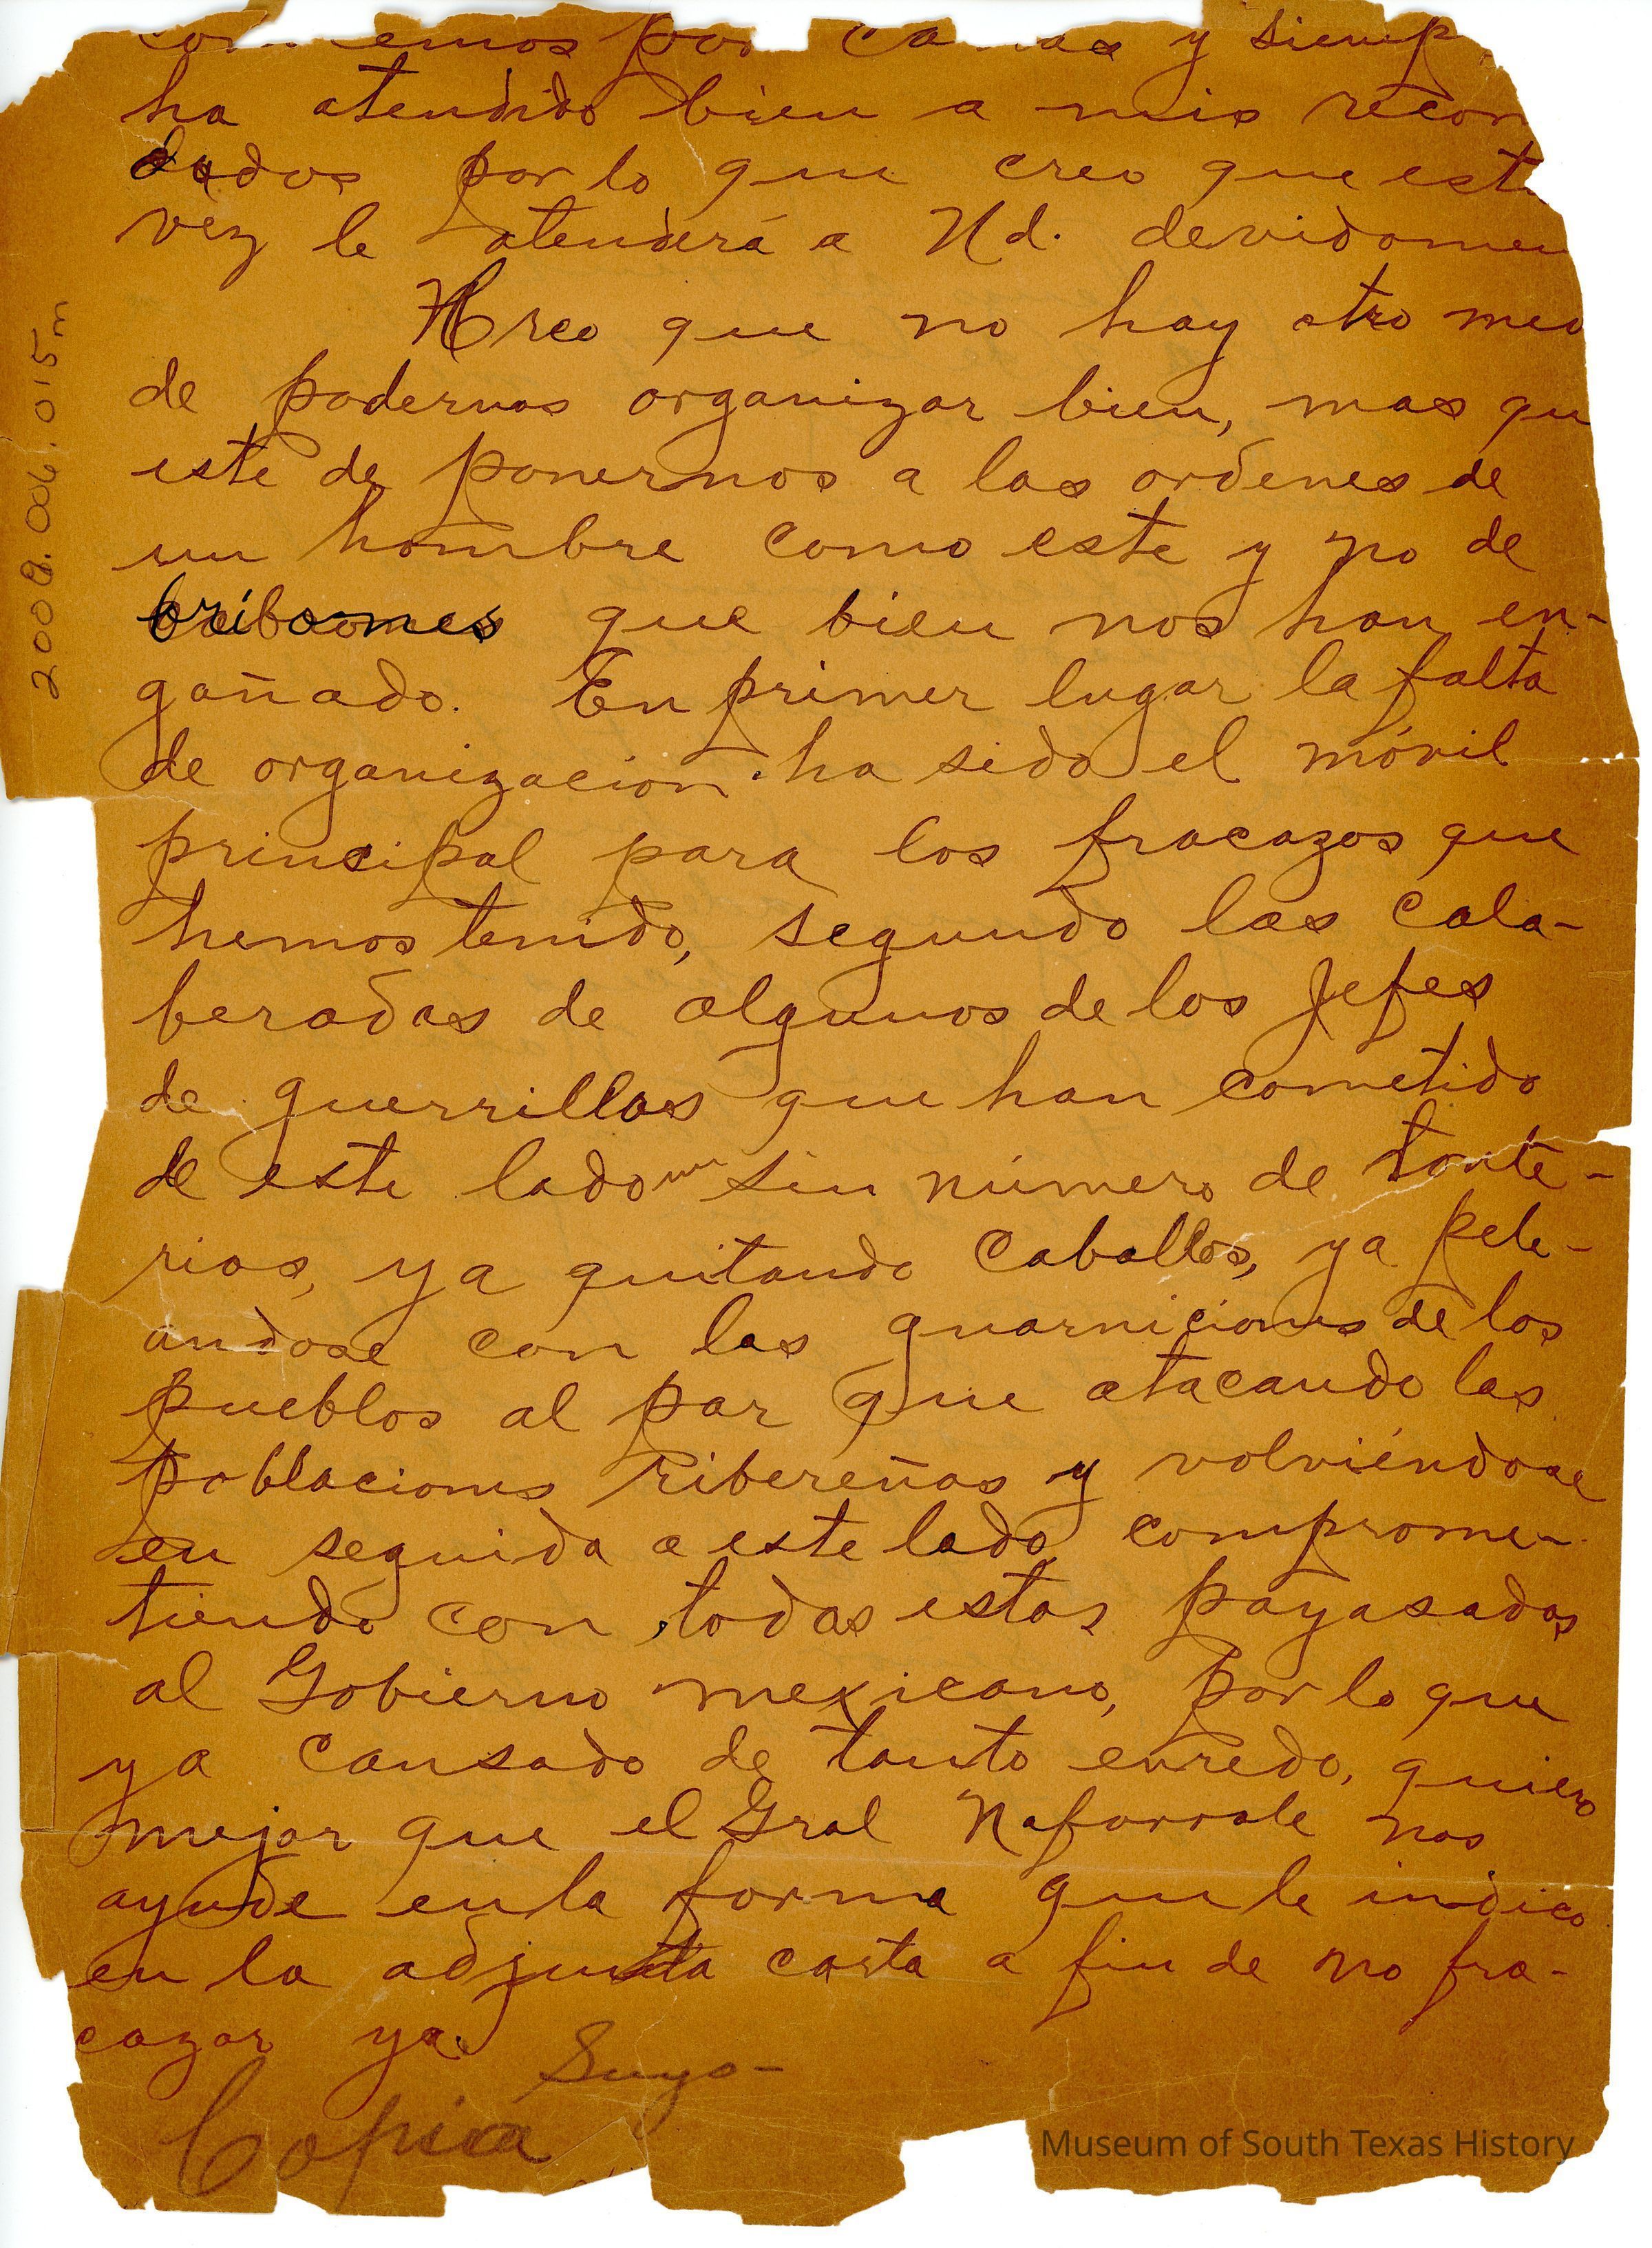 emos por y siemp
ha atendido bien a mis recom
dados por lo que creo que esta
vez le atenderá a Ud. devidamen
Creo que no hay otro med
de podernos organizar bien, mas qu
este de ponernos a las ordenes de
un hombre como este y no de
bribomes que bien nos han en-
gañado. En primer lugar la falta
de organizacion ha sido el móvil
principal para los fracazos que
hemos tenido, segundo las cala-
beradas de algunos de los Jefes
de guerrillas que han cometido
de este lado un sin número de tonte-
rias, ya quitando Caballos, ya pele-
andose con las guarniciones de los
pueblos al par que atacando las
poblaciones ribereñas y volviéndose
en seguida a este lado comprome-
tiendo con todas estas payasadas
al Gobierno mexicano, por lo que
ya cansado de tanto enredo, quiero
mejor que el Gral Nafarrate nos
ayude en la forma que le indico
en la adjunta carta a fin de no fra-
cazar ya.
Suyo-
Copia
2009.006.015m
Museum of South Texas History